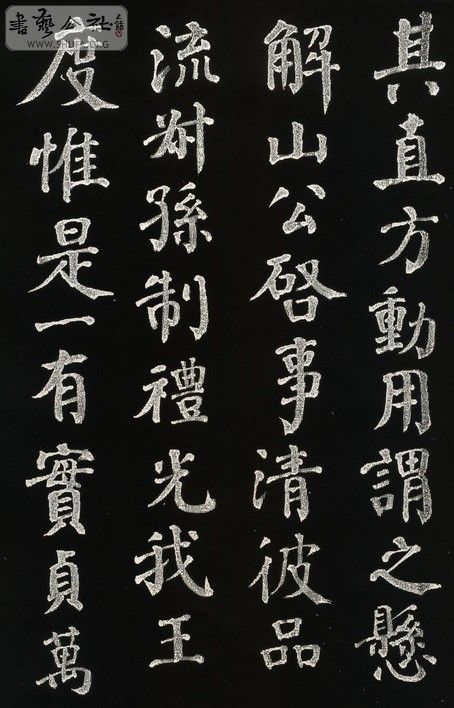 其直方動用謂之懸
解山公啓事清彼品
流叔孫制禮光我王
度惟是一有實貞萬
書藝公社
www.shufa.ORG